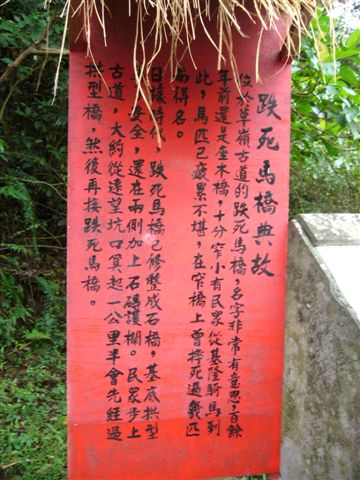 跌死馬橋典故
位於草嶺古道的跌死馬橋,名字非常有意思,百餘
年前還是座木橋,十分窄小有民眾從基隆騎馬到
此,馬匹已疲累不堪,在窄橋上曾摔死過幾匹
而得名。
日據時代,跌死馬橋已修整成石橋,基底拱型
安全,還在兩側加上石磚護欄。民眾步上
古道,大約從遠望坑口算起一公里半會先經過
拱型橋,然後再接跌死馬橋。